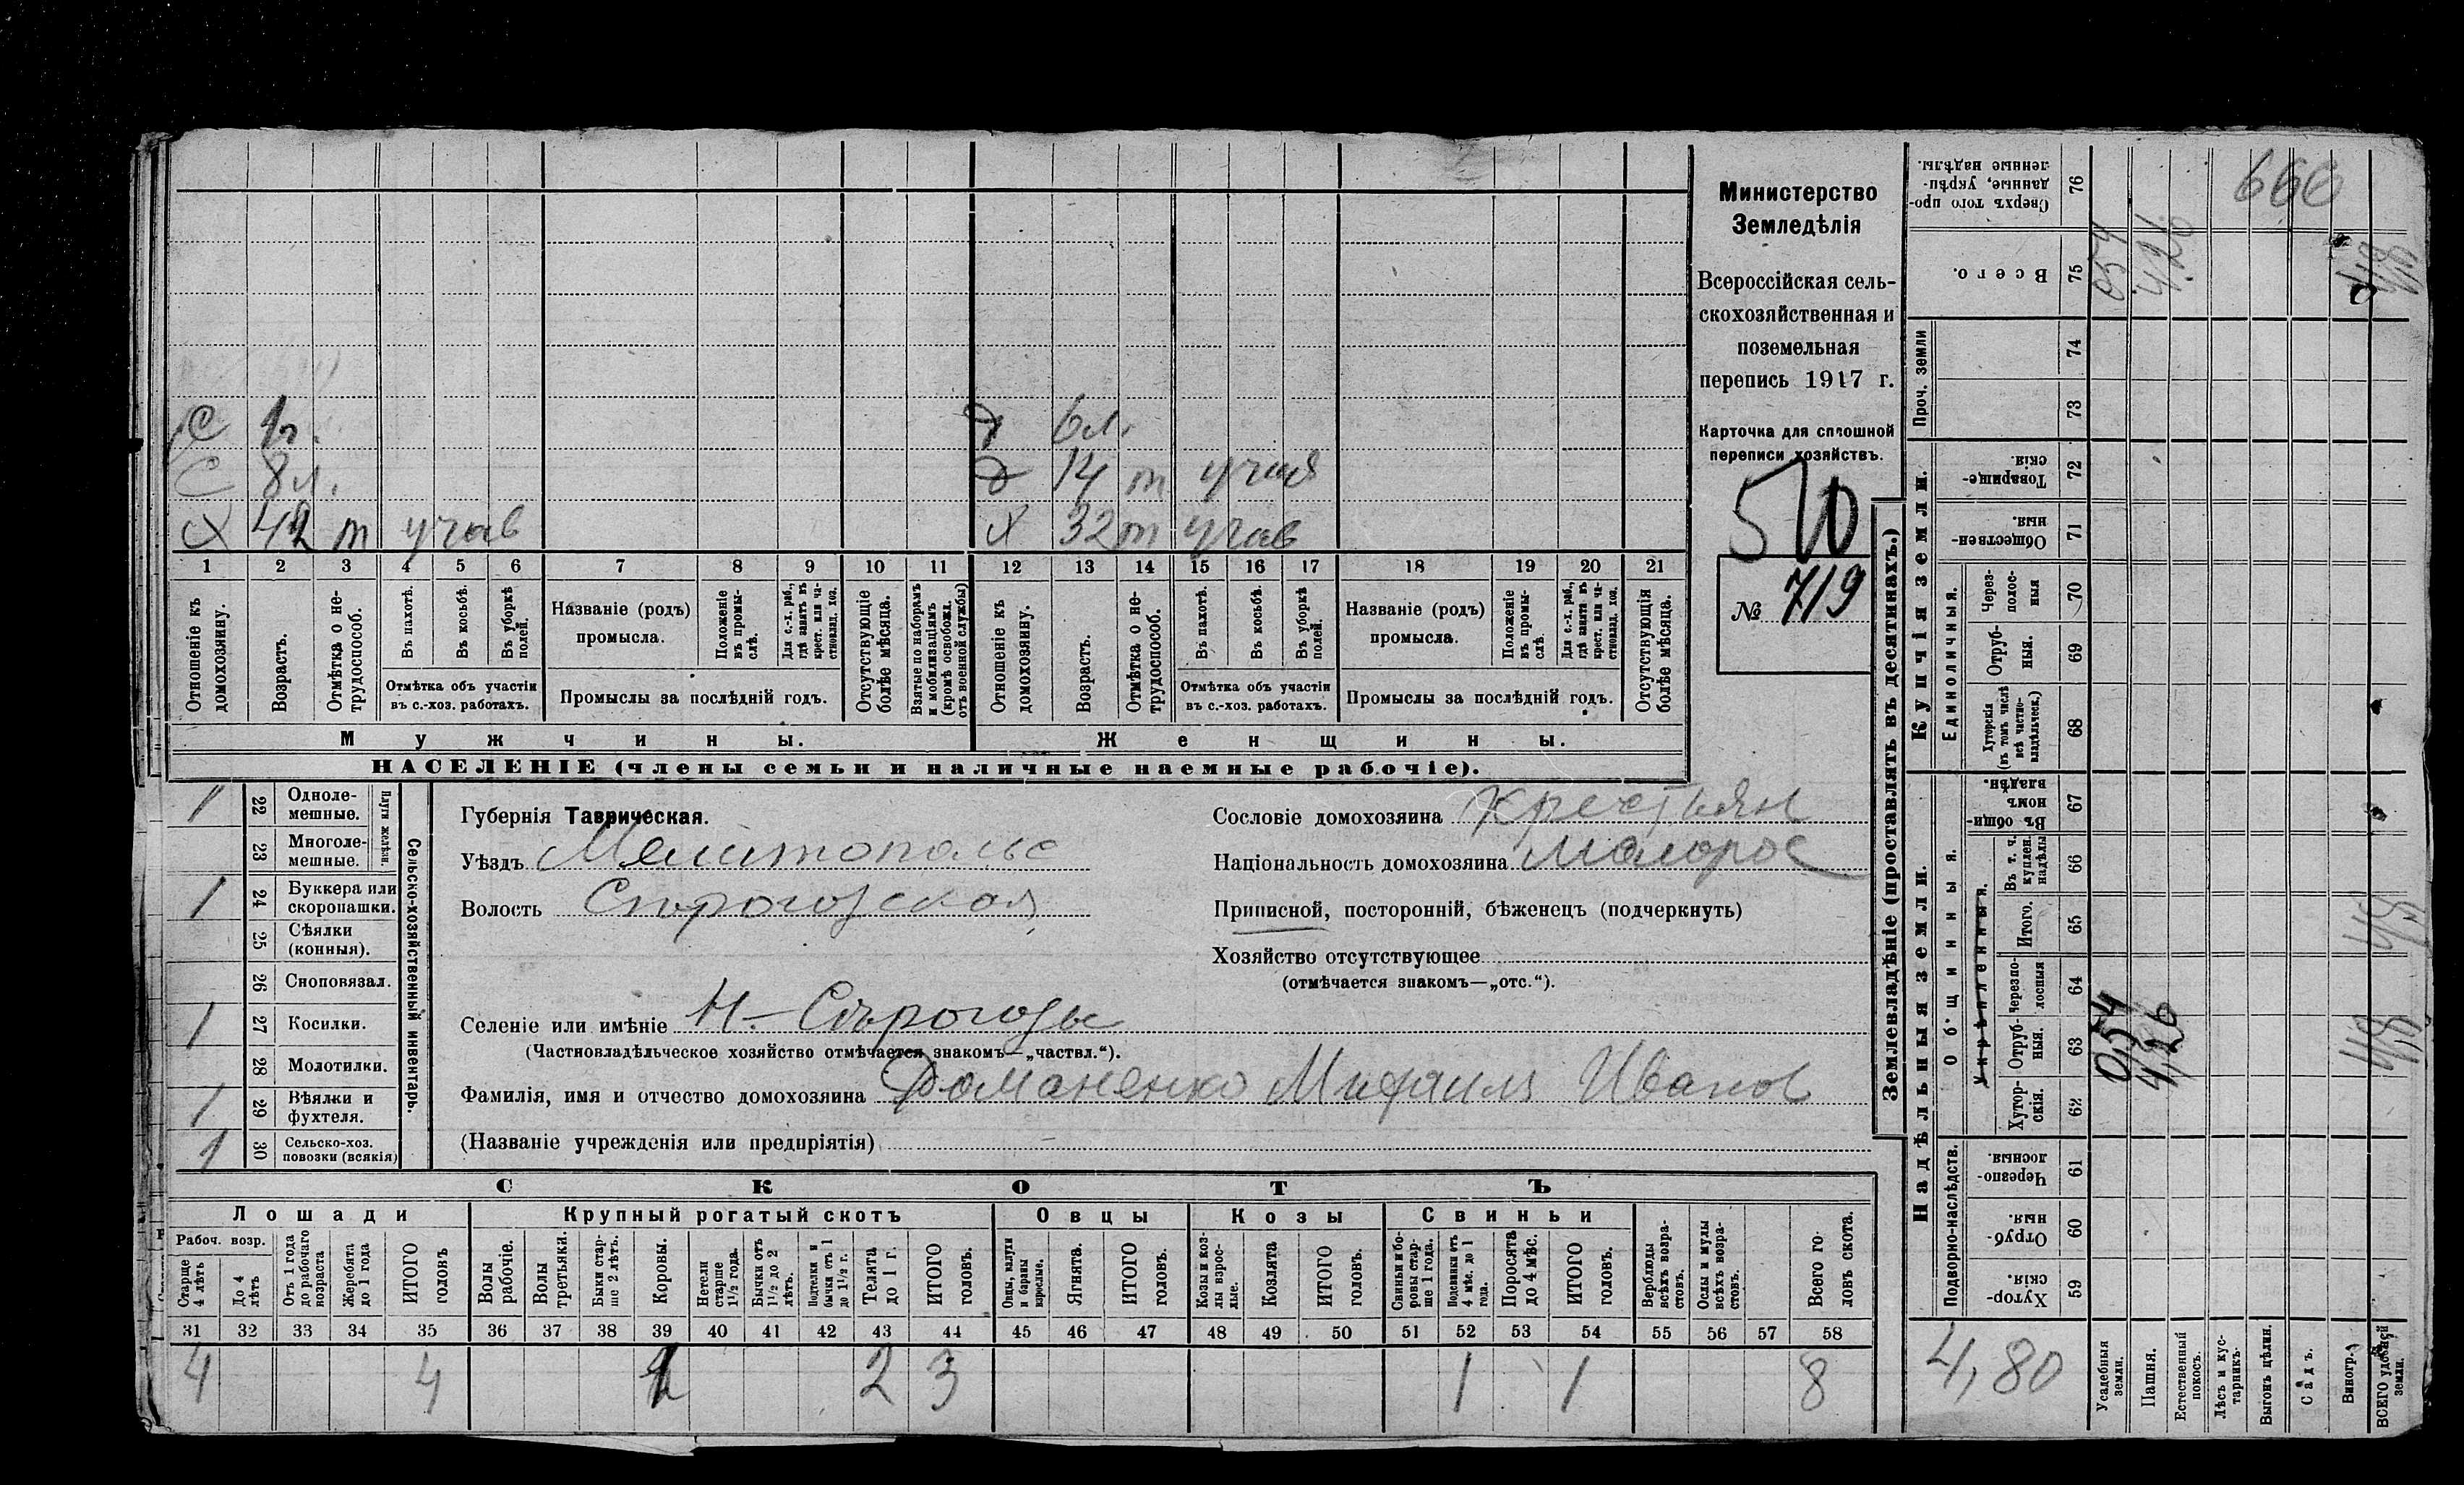 С 1 г.
С 8 л.
Х 42 т учав
Д 6 л.
Д 14 т учая
Х 32 т учав
1 2 3 4 5 6 7 8 9 10 11 12 13 14 15 16 17 18 19 20 21
Отношеніе къ домохозяину.
Возрастъ.
Отмѣтка о не-трудоспособ.
Въ пахотѣ.
Въ косьбѣ.
Въ уборкѣ полей.
Отмѣтка объ участіи въ с.-хоз. работахъ.
Названіе (родъ) промысла.
Положеніе въ промы-слѣ.
Для с.-х. раб., гдѣ занятъ въ крест. или ча-стновлад. хоз.
Промыслы за послѣдній годъ.
Отсутствующіе болѣе мѣсяца.
Взятые по наборамъ и мобилизаціямъ (кромѣ освобожд. отъ военной службы)
Отношеніе къ домохозяину.
Возрастъ.
Отмѣтка о не-трудоспособ.
Въ пахотѣ.
Въ косьбѣ.
Въ уборкѣ полей.
Отмѣтка объ участіи въ с.-хоз. работахъ.
Названіе (родъ) промысла.
Положеніе въ промы-слѣ.
Для с.-х. раб., гдѣ занята въ крест. или ча-стновлад. хоз.
Промыслы за послѣдній годъ.
Отсутствующія болѣе мѣсяца.
Мужчины.
Женщины.
НАСЕЛЕНІЕ (члены семьи и наличные наемные рабочіе).
Министерство
Земледѣлія
Всероссійская сель-
скохозяйственная и
поземельная
перепись 1917 г.
Карточка для сплошной
переписи хозяйствъ.
510
№ 719
1 22 Одноле-мешные.
23 Многоле-мешные.
Плуги желѣзн.
1 24 Буккера или скоропашки.
25 Сѣялки (конныя).
26 Сноповязал.
1 27 Косилки.
28 Молотилки.
1 29 Вѣялки и фухтеля.
1 30 Сельско-хоз. повозки (всякія)
Сельско-хозяйственный инвентарь.
Губернія Таврическая.
Уѣздъ Мелитопольс
Волость Сѣрогозская
Селеніе или имѣніе Н.-Сѣрогозы
(Частновладѣльческое хозяйство отмѣчается знакомъ—„частвл.“).
Фамилія, имя и отчество домохозяина Романенко Михаилъ Иванов
(Названіе учрежденія или предпріятія)
Сословіе домохозяина Крестьян
Національность домохозяина Малорос
Приписной, посторонній, бѣженецъ (подчеркнуть)
Хозяйство отсутствующее
(отмѣчается знакомъ—„отс.“).
СКОТЪ
Лошади
Крупный рогатый скотъ
Овцы
Козы
Свиньи
Рабоч. возр.
Старше 4 лѣтъ
До 4 лѣтъ
Отъ 1 года до рабочаго возраста
Жеребята до 1 года
ИТОГО головъ
Волы рабочіе.
Волы третьяки.
Быки стар-ше 2 лѣтъ.
Коровы.
Нетели старше 1½ года.
Бычки отъ 1½ до 2 лѣтъ.
Подтелки и бычки отъ 1 до 1½ г.
Телята до 1 г.
ИТОГО головъ.
Овцы, валухи и бараны взрослые.
Ягнята.
ИТОГО головъ.
Козы и коз-лы взрос-лые.
Козлята
ИТОГО головъ.
Свиньи и бо-ровы стар-ше 1 года.
Подсвинки отъ 4 мѣс. до 1 года.
Поросята до 4 мѣс.
ИТОГО головъ.
Верблюды всѣхъ возра-стовъ.
Ослы и мулы всѣхъ возра-стовъ.
Всего го-ловъ скота.
31 32 33 34 35 36 37 38 39 40 41 42 43 44 45 46 47 48 49 50 51 52 53 54 55 56 57 58
4 4 1 2 3 1 1 8
Землевладѣніе (проставлять въ десятинахъ.)
Надѣльныя земли.
Купчія земли.
Проч. земли
Подворно-наслѣдств.
Общинныя.
Укрѣпленныя.
Единоличныя.
Сверхъ того про-данные, укрѣп-ленные надѣлы. 76
Всего. 75
74
73
Товарище-скія. 72
Обществен-ныя. 71
Через-полос-ныя 70
Отруб-ныя. 69
Хуторскія (въ томъ числѣ всѣ частно-владѣльческ.) 68
Въ общин-номъ владѣн. 67
Въ т. ч. куплен. надѣлы 66
Итого. 65
Черезпо-лосныя 64
Отруб-ныя. 63
Хутор-скія. 62
Черезпо-лосныя. 61
Отруб-ныя. 60
Хутор-скія 59
666
054
4,26
0,54
4,26
4,8
4,8
4,8
4,80
Усадебныя земли.
Пашня.
Естественный покосъ.
Лѣсъ и кус-тарникъ.
Выгонъ цѣлин.
Садъ.
Виногр.
ВСЕГО удобной земли.